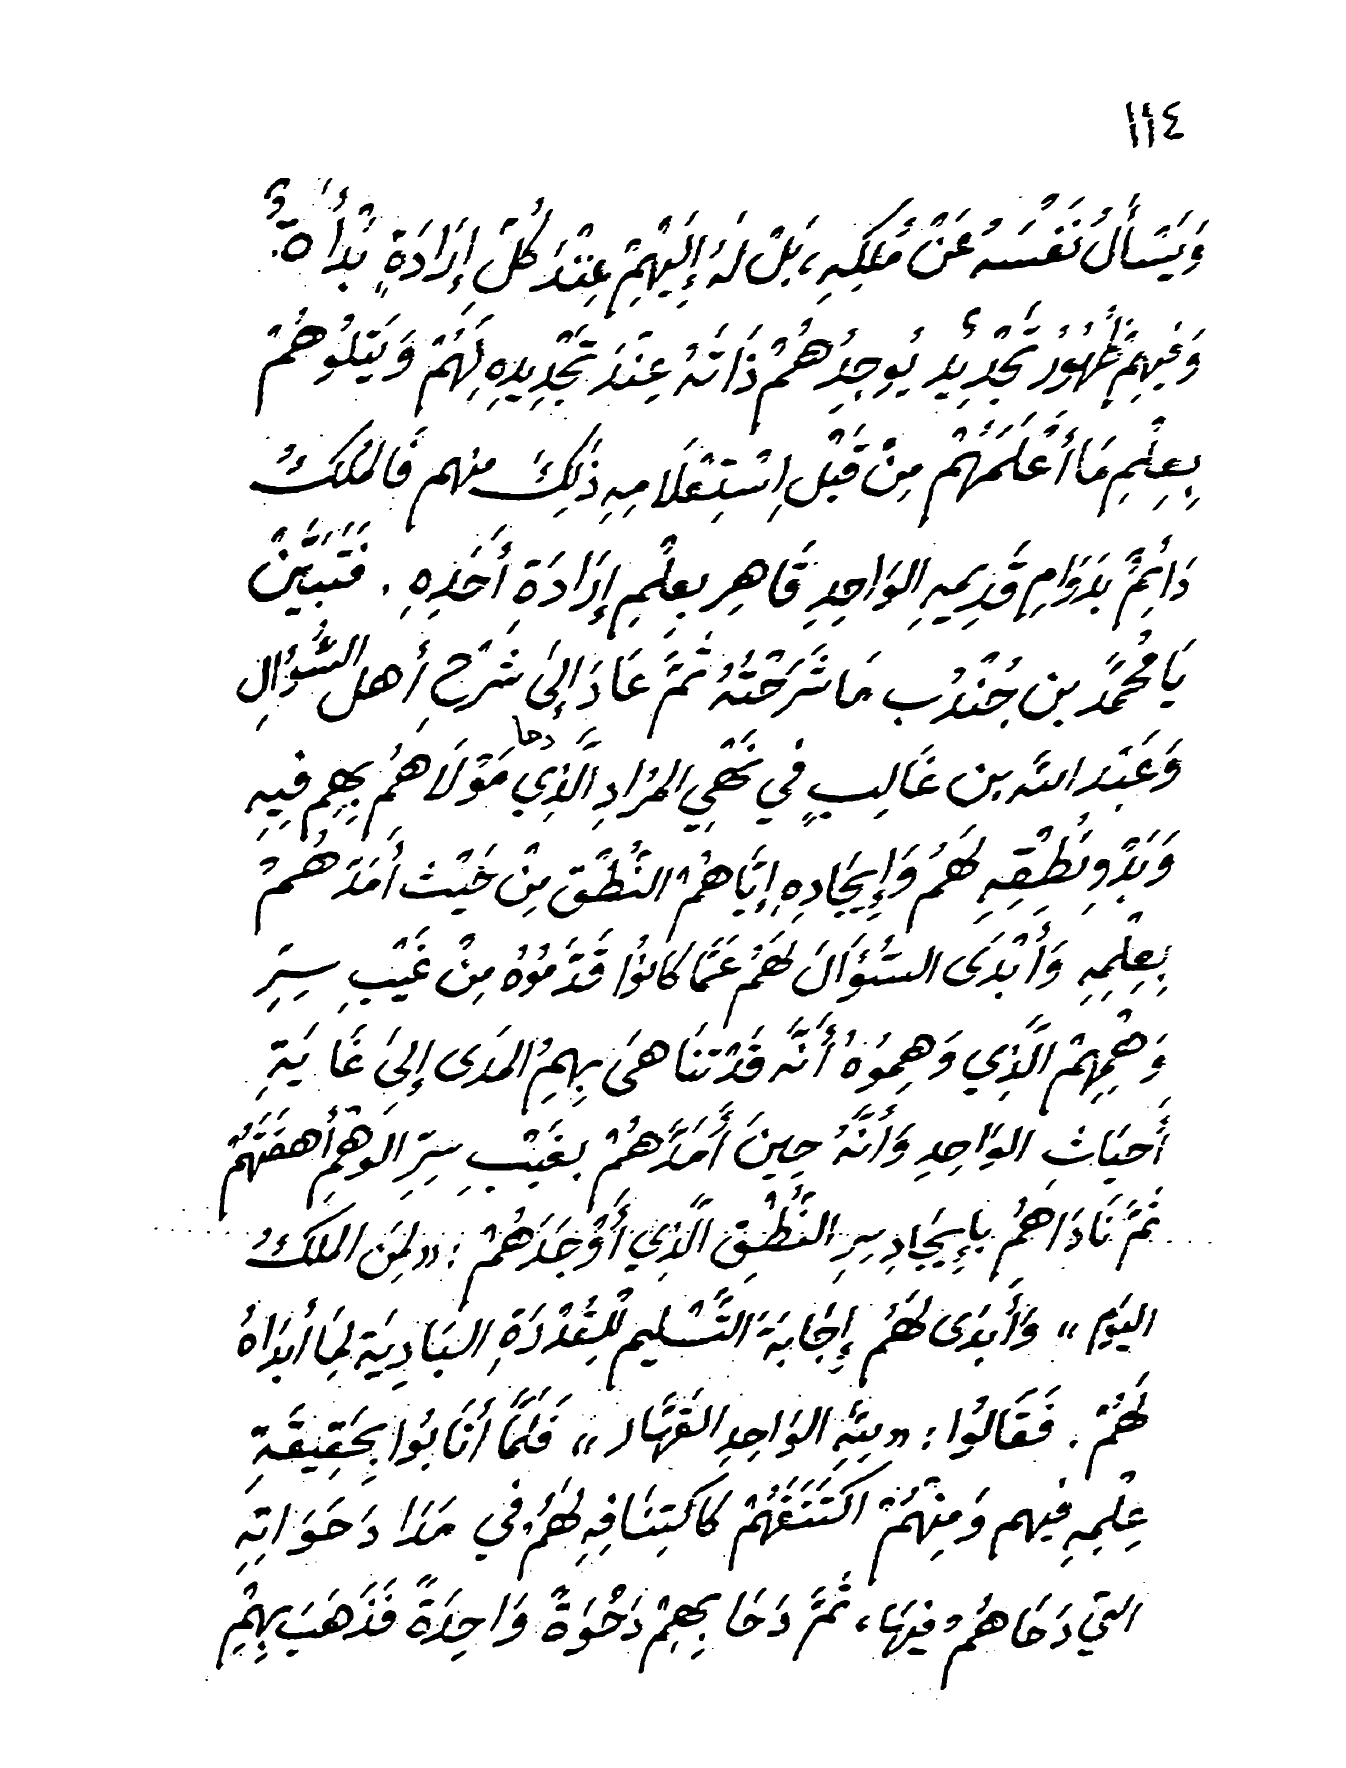 ١١٤
وَيَسْأَلُ نَفْسَهُ عَنْ مُلْكِهِ، بَلْ لَهُ إِلَيْهِمْ عِنْدَ كُلِّ إِرَادَةٍ بَدْأَةٌ
وَفِيهِمْ ظُهُورُ تَجْدِيدٍ يُوجِدُهُمْ ذَاتَهُ عِنْدَ تَجْدِيدِهِ لَهُمْ وَيَتْلُوهُمْ
بِعِلْمِ مَا أَعْلَمَهُمْ مِنْ قَبْلِ اِسْتِعْلَامِهِ ذَلِكَ منهم فَالمُلْكُ
دَائِمٌ بِدَوَامِ قَدِيمِهِ الوَاحِدِ قَاهِر بِعِلْمِ إِرَادَةِ أَحَدِهِ . فَتَبَيَّنْ
يَا مُحَمَّدُ بن جُنْدُب مَا شَرَحْتُهُ ثُمَّ عَادَ إِلَى شَرْحِ أهل السُّؤَالِ
وَعَبْد اللَّه بن غَالِبٍ فِي نَهْيِ المُرَادِ الَّذِي دحا مَوْلَاهُمْ بِهِم فِيهِ
وَبَدْوِ نُطْقِهِ لَهُمْ وَإِيجَادِهِ إِيَّاهُمْ النُّطْقَ مِنْ حَيْثُ أَمَدَّهُمْ
بِعِلْمِهِ وَأَبْدَى السُّؤَالَ لَهُمْ عَمَّا كَانُوا قَدَّمُوهُ مِنْ غَيْبِ سِرِّ
وَهْمِهِمْ الَّذِي وَهِمُوهُ أَنَّه قَدْ تَنَاهَى بِهِمُ المَدَى إِلَى غَايَةِ
أَحيَاثِ الوَاحِدِ وَأَنَّهُ حِينَ أَمَدَّهُمْ بِغَيْبِ سِرِّ الوَهْمِ أَهفَتَهُمْ
ثُمَّ نَادَاهُمْ بِإِيجَادِ سِرِّ النُّطْقِ الَّذِي أَوْجَدَهُمْ : «لِمَنِ المُلْكُ
اليَوْمَ» وَأَبْدَى لَهُمْ إِجَابَةَ التَّسْلِيمِ لِلْقُدْرَةِ البَادِيَةِ لِمَا أَبْدَاهُ
لَهُمْ . فَقَالُوا : «لِلَّهِ الوَاحِدِ القَهَّار» فَلَمَّا أَنَابُوا بِحَقِيقَةِ
عِلْمِهِ فِيهِم وَمِنْهُمْ اكْتَنَفَهُمْ كَاكتِنَافِهِ لَهُمْ فِي مَدَا دَحَوَاتِهِ
التي دَحَاهُمْ فِيهَا، ثُمَّ دَحَا بِهِمْ دَحْوَةً وَاحِدَةً فَذَهَبَ بِهِمْ